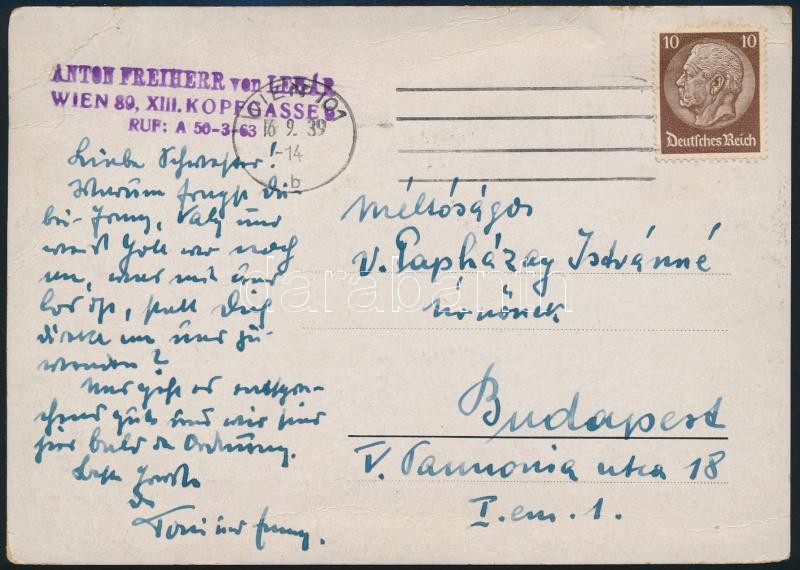 ANTON FREIHERR von LEHÁR
WIEN 89, XIII. KOPFGASSE
RUF: A 50-3-63
WIEN 101
16 9. 39
-14
b
10 10
Deutsches Reich
Liebe Schwester!
Warum fragst du
bei Fanny, Valy und
weiß Gott wer noch
an, was mit uns
los ist, statt Dich
direkt an uns zu
wenden?
Uns geht es entspre-
chend gut und wir sind
hier bald in Ordnung.
Toni und Emmy.
Méltóságos
v. Papházay Istvánné
Úrnőnek
Budapest
V. Pannonia utca 18
I. em. 1.
darabanth